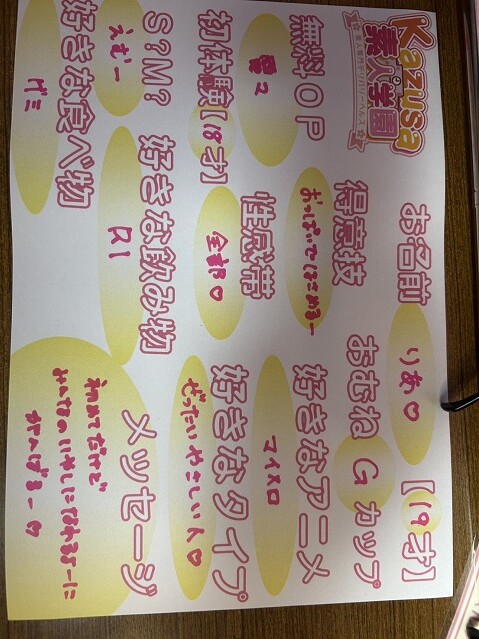 Kazusa
素人学園
お名前 りあ♡ 【19才】
得意技 おっぱいではさめるー
おむね G カップ
無料OP
好きなアニメ マイメロ
初体験【18才】
性感帯 全部♡
好きなタイプ ぜったいやさしい人♡
S?M? えむー
好きな飲み物 R1
好きな食べ物 グミ
メッセージ
初めてだけど
みんなのいやしになれるよーに
がんばるー♡